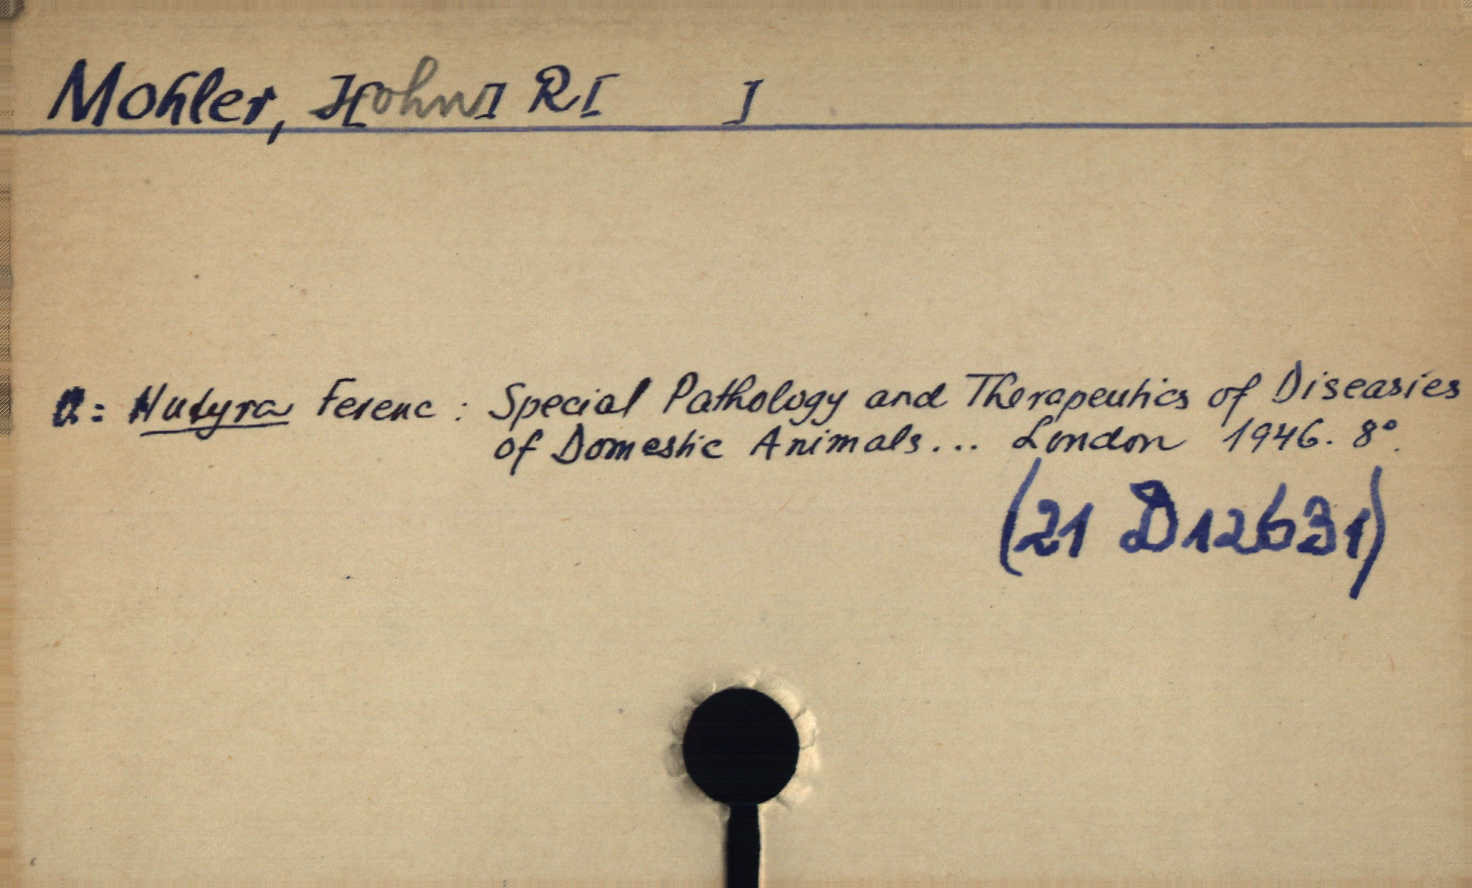 Mohler, J[ohn] R[ ]
a: Hutyra Ferenc: Special Pathology and Therapeutics of Diseasies
of Domestic Animals... London 1946. 8°.
(21 D12631)